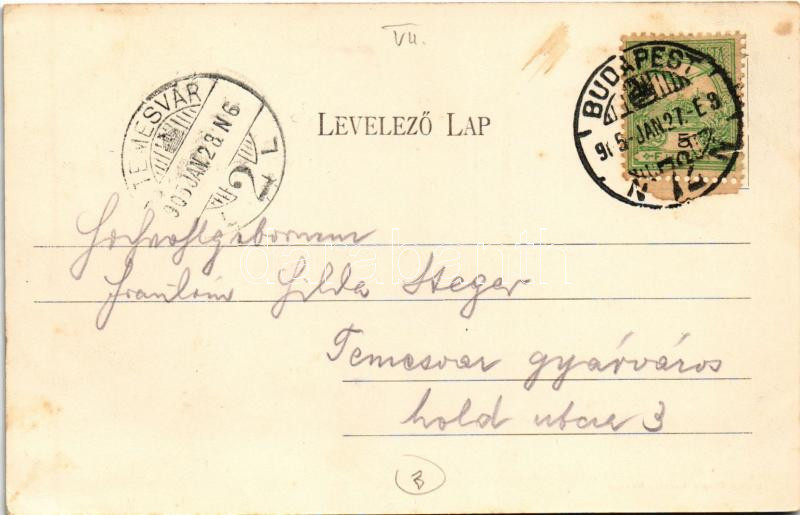 VII.
LEVELEZŐ LAP
TEMESVÁR
905 JAN 28 N 6
BUDAPEST
905 JAN 27. E 8
72
Hochwohlgebornem
Fräulein Hilda Steger
Temesvar gyárváros
hold utcza 3
darabanth
B